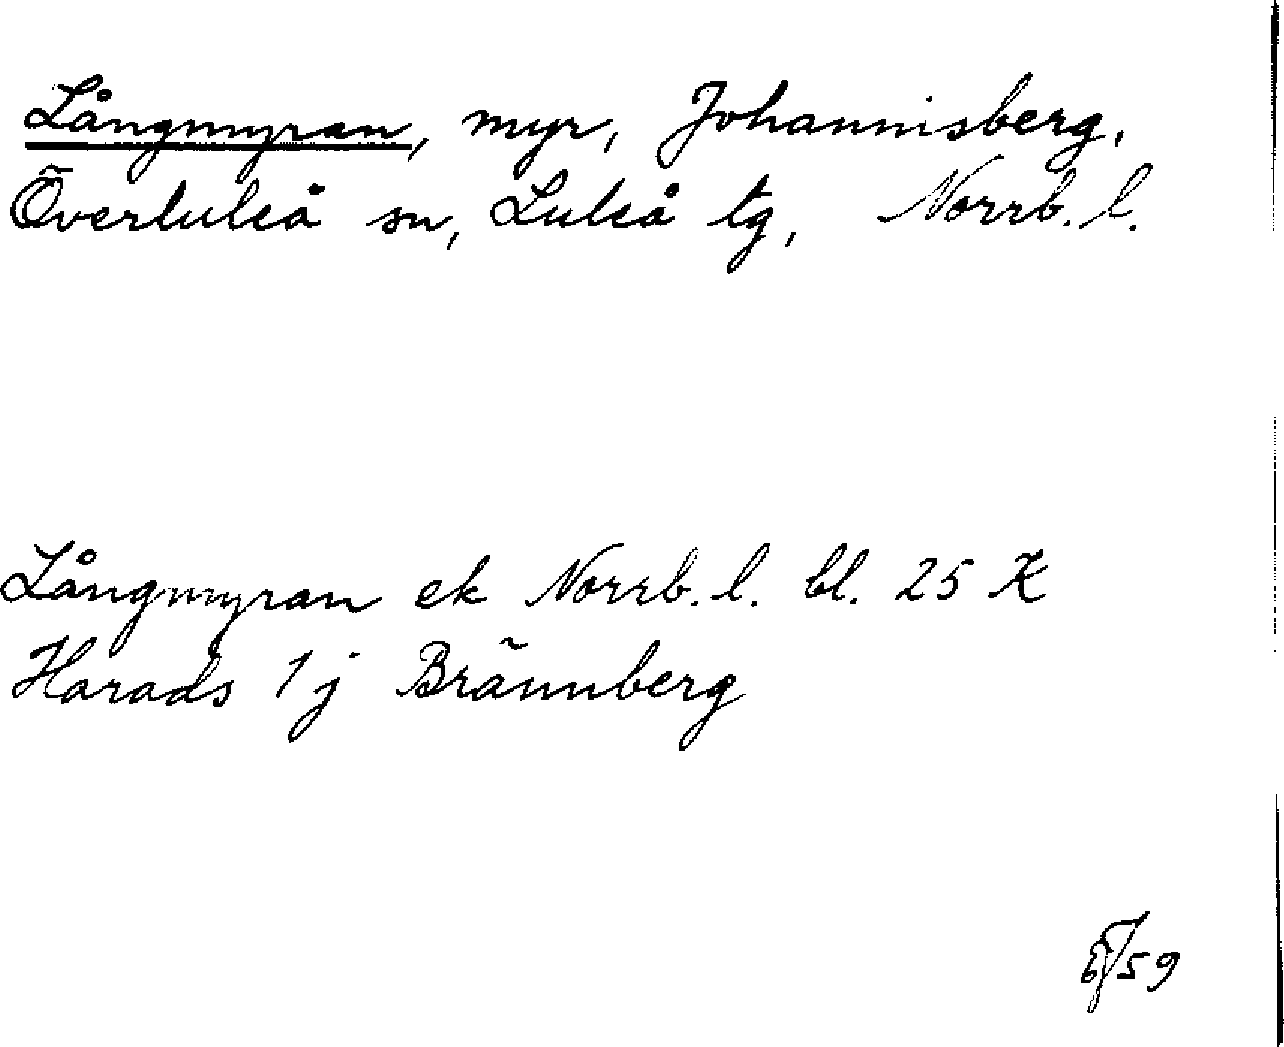 Långmyran, myr, Johannisberg,
Överluleå sn, Luleå tg, Norrb. l.
Långmyran ek Norrb. l. bl. 25 K
Harads 1 j Brännberg